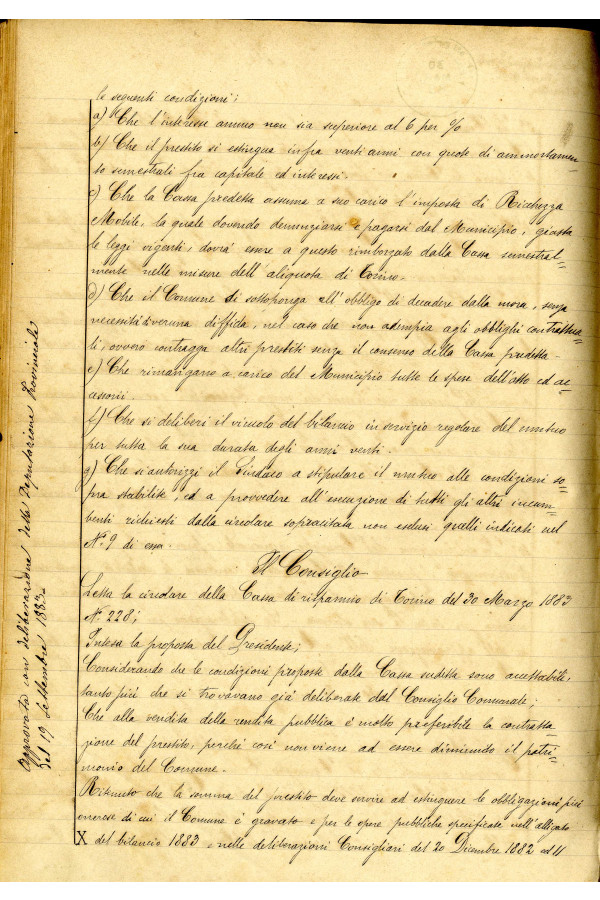 le seguenti condizioni;
a) Che l'interesse annuo non sia superiore al 6 per %
b) Che il prestito si estingua infra venti anni con quote di ammortamen=
to semestrali fra capitale ed interessi.
c) Che la Cassa predetta assuma a suo carico l'imposta di Richezza
Mobile, la quale dovendo denunziarsi e pagarsi dal Municipio, giusta
le leggi vigenti, dovrà essere a questo rimborzato dalla Cassa semestral=
mente nelle misure dell'aliquota di Torino.
d) Che il Comune si sottoponga all'obbligo di decadere dalla mora, senza
necessità di veruna diffida, nel caso che non adempia agli obblighi contrattua=
li, ovvero contragga altri prestiti senza il consenso della Cassa predetta.
e) Che rimangano a carico del Municipio tutte le spese dell'atto ed ac=
cessorii.
f) Che si deliberi il vincolo del bilancio in servizio regolare del mutuo
per tutta la sua durata degli anni venti.
g) Che si autorizzi il Sindaco a stipulare il mutuo alle condizioni so=
pra stabilite, ed a provvedere all'esecuzione di tutti gli altri incum=
benti richiesti dalla circolare sopracitata non esclusi quelli indicati nel
N.º 9 di essa.
Il Consiglio
Letta la circolare della Cassa di risparmio di Torino del 30 Marzo 1883
N.º 228;
Intesa la proposta del Presidente;
Considerando che le condizioni proposte dalla Cassa sudetta sono accettabili,
tanto più che si trovavano già deliberate dal Consiglio Comunale;
Che alla vendita della rendita pubblica è molto preferibile la contratta=
zione del prestito, perché così non viene ad essere diminuido il patri=
monio del Comune.
Ritenuto che la somma del prestito deve servire ad estinguere le obbligazioni più
onerose di cui il Comune è gravato e per le opere pubbliche specificate nell'allegato
X del bilancio 1883, e nelle deliberazioni Consigliari del 20 Dicembre 1882 ed 11
Approvato con deliberazione della Deputazione Provinciale
del 19 Settembre 1883